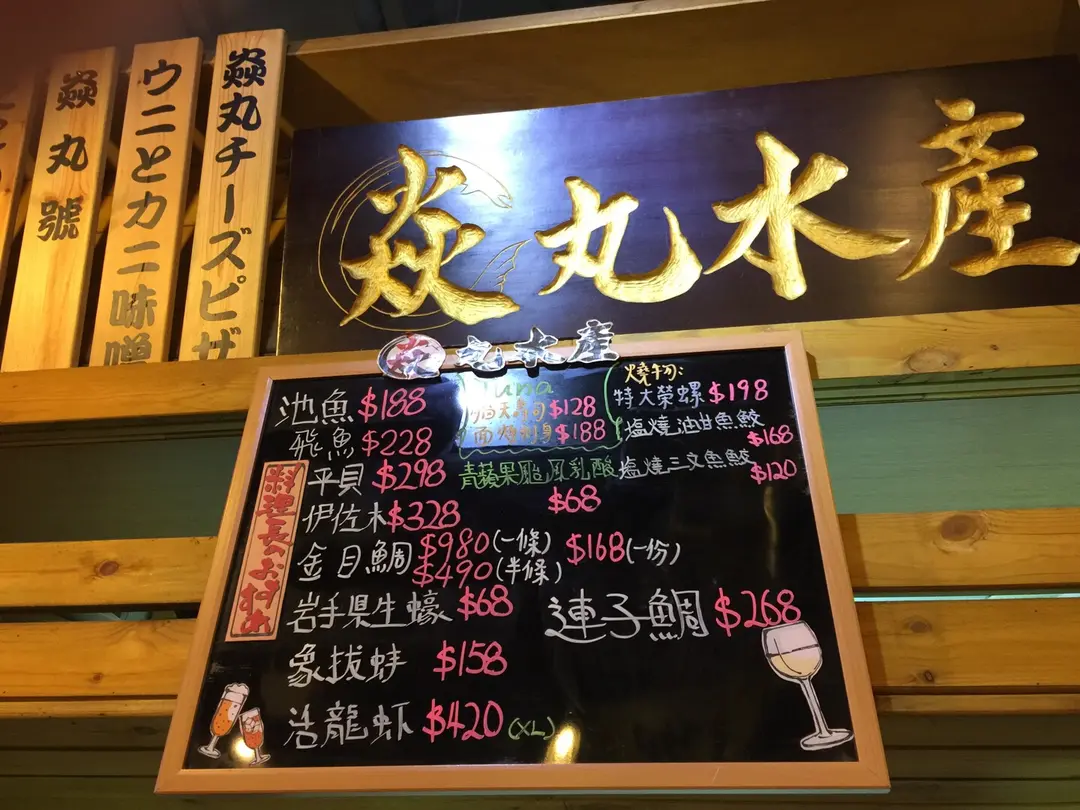 焱丸號
ウニとカニ味噌
焱丸チーズピザ
焱丸水產
焱丸水產
池魚 $188
飛魚 $228
平貝 $298
伊佐木 $328
金目鯛 $980(一條) $168(一份)
$490(半條)
岩手県生蠔 $68
象拔蚌 $158
活龍虾 $420 (XL)
料理長のおすすめ
una
壽司 $128
刺身 $188
青蘋果颱風乳酸
$68
連子鯛 $268
燒物:
特大榮螺 $198
塩燒油甘魚鮫
$168
塩燒三文魚鮫
$120